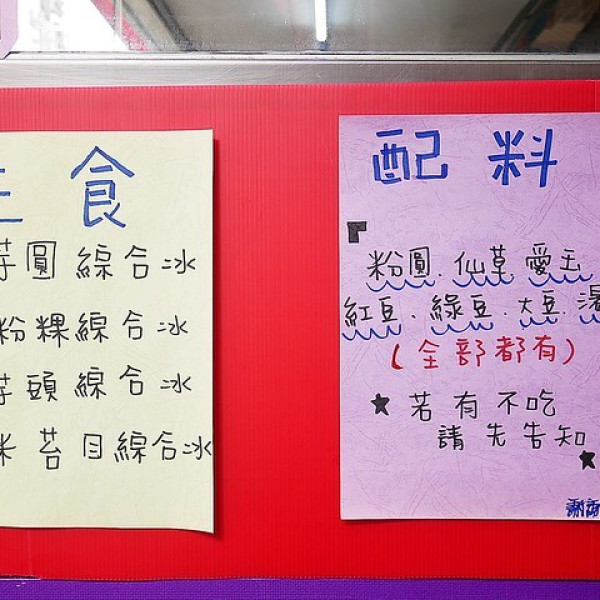 主食
芋圓綜合冰
粉粿綜合冰
芋頭綜合冰
米苔目綜合冰
配料
粉圓.仙草.愛玉
紅豆.綠豆.大豆.湯
(全部都有)
★若有不吃
請先告知★
謝謝